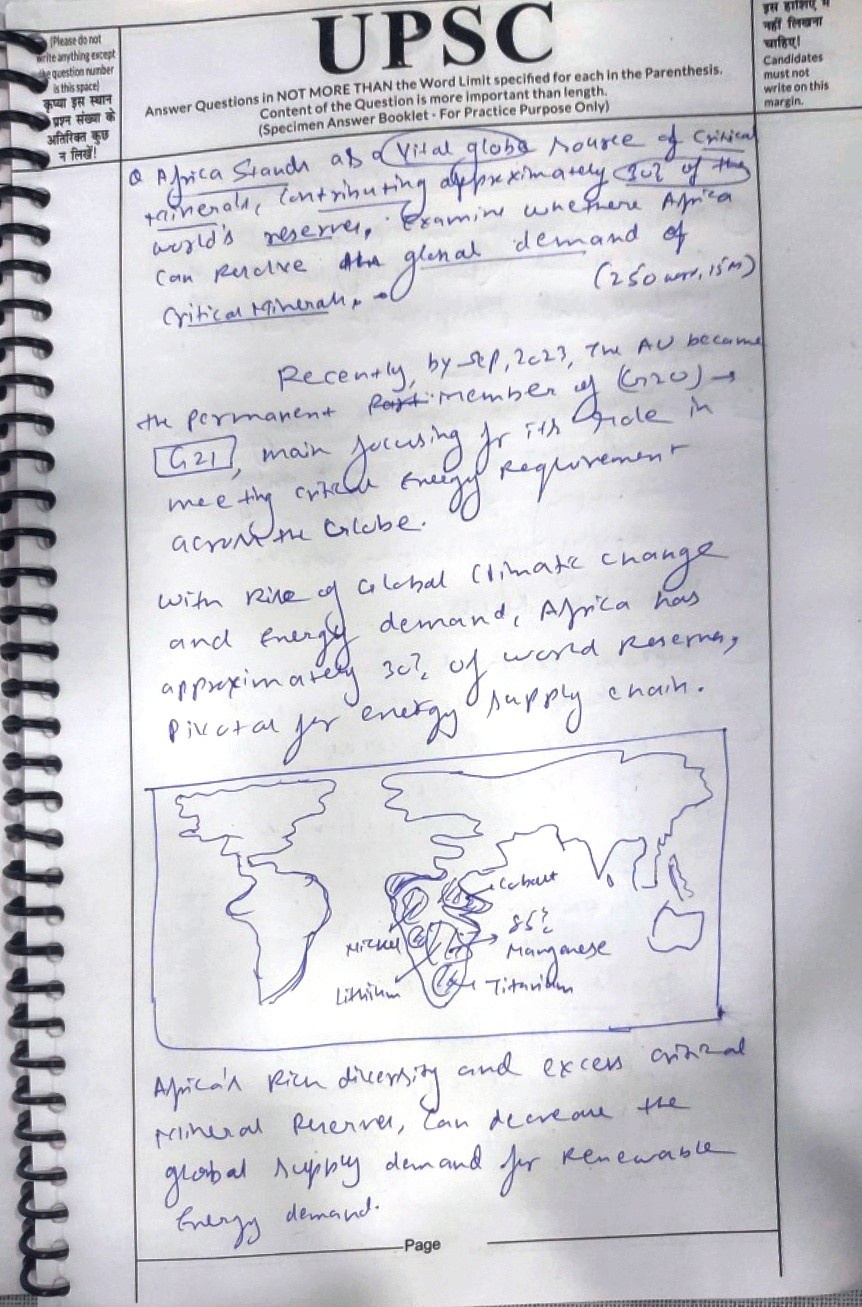 (Please do not
write anything except
the question number
is this space)
कृप्या इस स्थान
प्रश्न संख्या के
अतिरिक्त कुछ
न लिखें!
UPSC
Answer Questions in NOT MORE THAN the Word Limit specified for each in the Parenthesis.
Content of the Question is more important than length.
(Specimen Answer Booklet - For Practice Purpose Only)
इस हाशिए में
नहीं लिखना
चाहिए!
Candidates
must not
write on this
margin.
Q Africa Stands as a Vital globa source of Critical
minerals, Contributing approximately 30% of the
world's reserves. Examine whethere Africa
Can resolve the global demand of
Critical Minerals. (250 word, 15M)
Recently, by Sep, 2023, The AU became
the permanent member of (G20) →
G21, main focusing for its role in
meeting critical Energy Requirement
across the Globe.
With Rise of Global Climate change
and Energy demand, Africa has
approximately 30% of world Reserves,
Pivotal for energy supply chain.
Cobalt
85%
Nickel
Manganese
Lithium
Titanium
Africa's Rich diversity and excess critical
Mineral Reserves, Can decrease the
global supply demand for Renewable
Energy demand.
Page